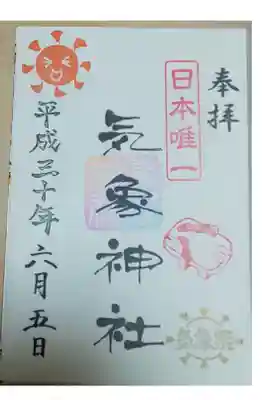 奉拝
日本唯一
気象神社
平成三十年六月五日